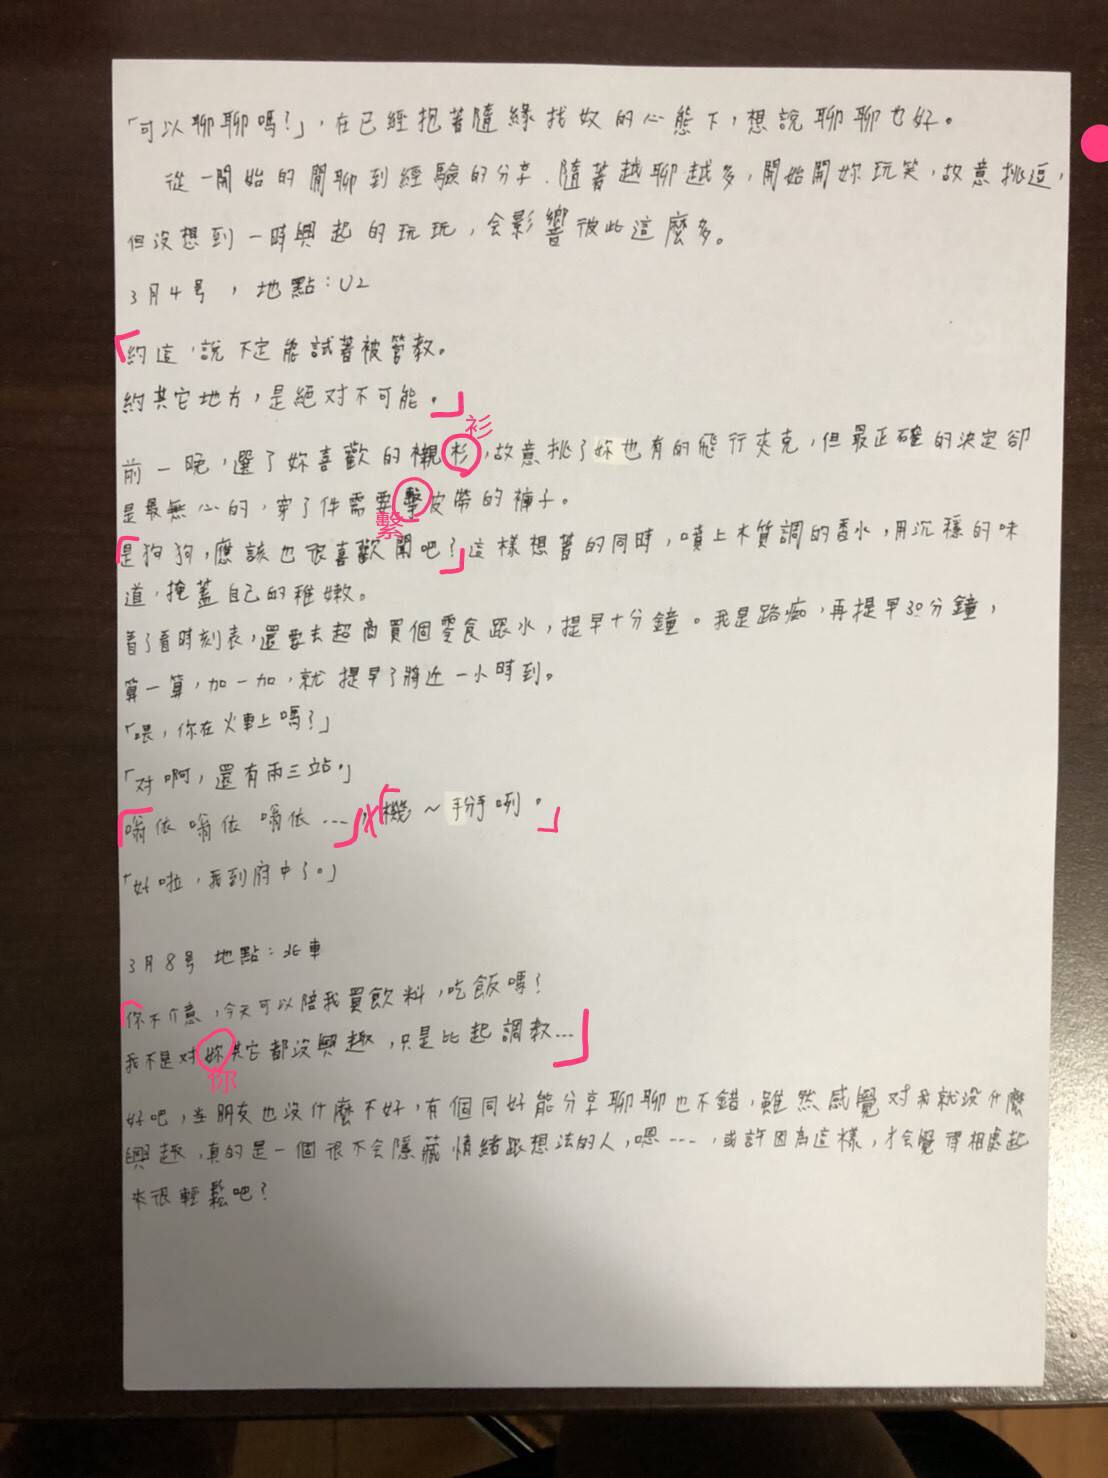 「可以聊聊嗎？」，在已經抱著隨緣找奴的心態下，想說聊聊也好。
從一開始的閒聊到經驗的分享，隨著越聊越多，開始開妳玩笑，故意挑逗，
但沒想到一時興起的玩玩，会影響彼此這麼多。
3月4号，地點：U2
「約這，說不定能試著被管教。
約其它地方，是絕对不可能。」
衫
前一晚，選了妳喜歡的襯杉，故意挑了妳也有的飛行夾克，但最正確的決定卻
是最無心的，穿了件需要擊皮帶的褲子。
繫
「是狗狗，應該也很喜歡聞吧？」這樣想著的同時，噴上木質調的香水，用沉穩的味
道，掩蓋自己的稚嫩。
看了看時刻表，還要去超商買個零食跟水，提早十分鐘。我是路痴，再提早30分鐘，
算一算，加一加，就提早了將近一小時到。
「喂，你在火車上嗎？」
「对啊，還有兩三站。」
「嗡依嗡依 嗡依…」，「機～掰咧。」
「好啦，我到府中了。」
3月8号 地點：北車
「你不介意，今天可以陪我買飲料，吃飯嗎？
我不是对妳其它都沒興趣，只是比起調教…」
你
好吧，当朋友也沒什麼不好，有個同好能分享聊聊也不錯，雖然感覺对我就沒什麼
興趣，真的是一個很不会隱藏情緒跟想法的人，嗯…，或許因為這樣，才会覺得相處起
來很輕鬆吧？